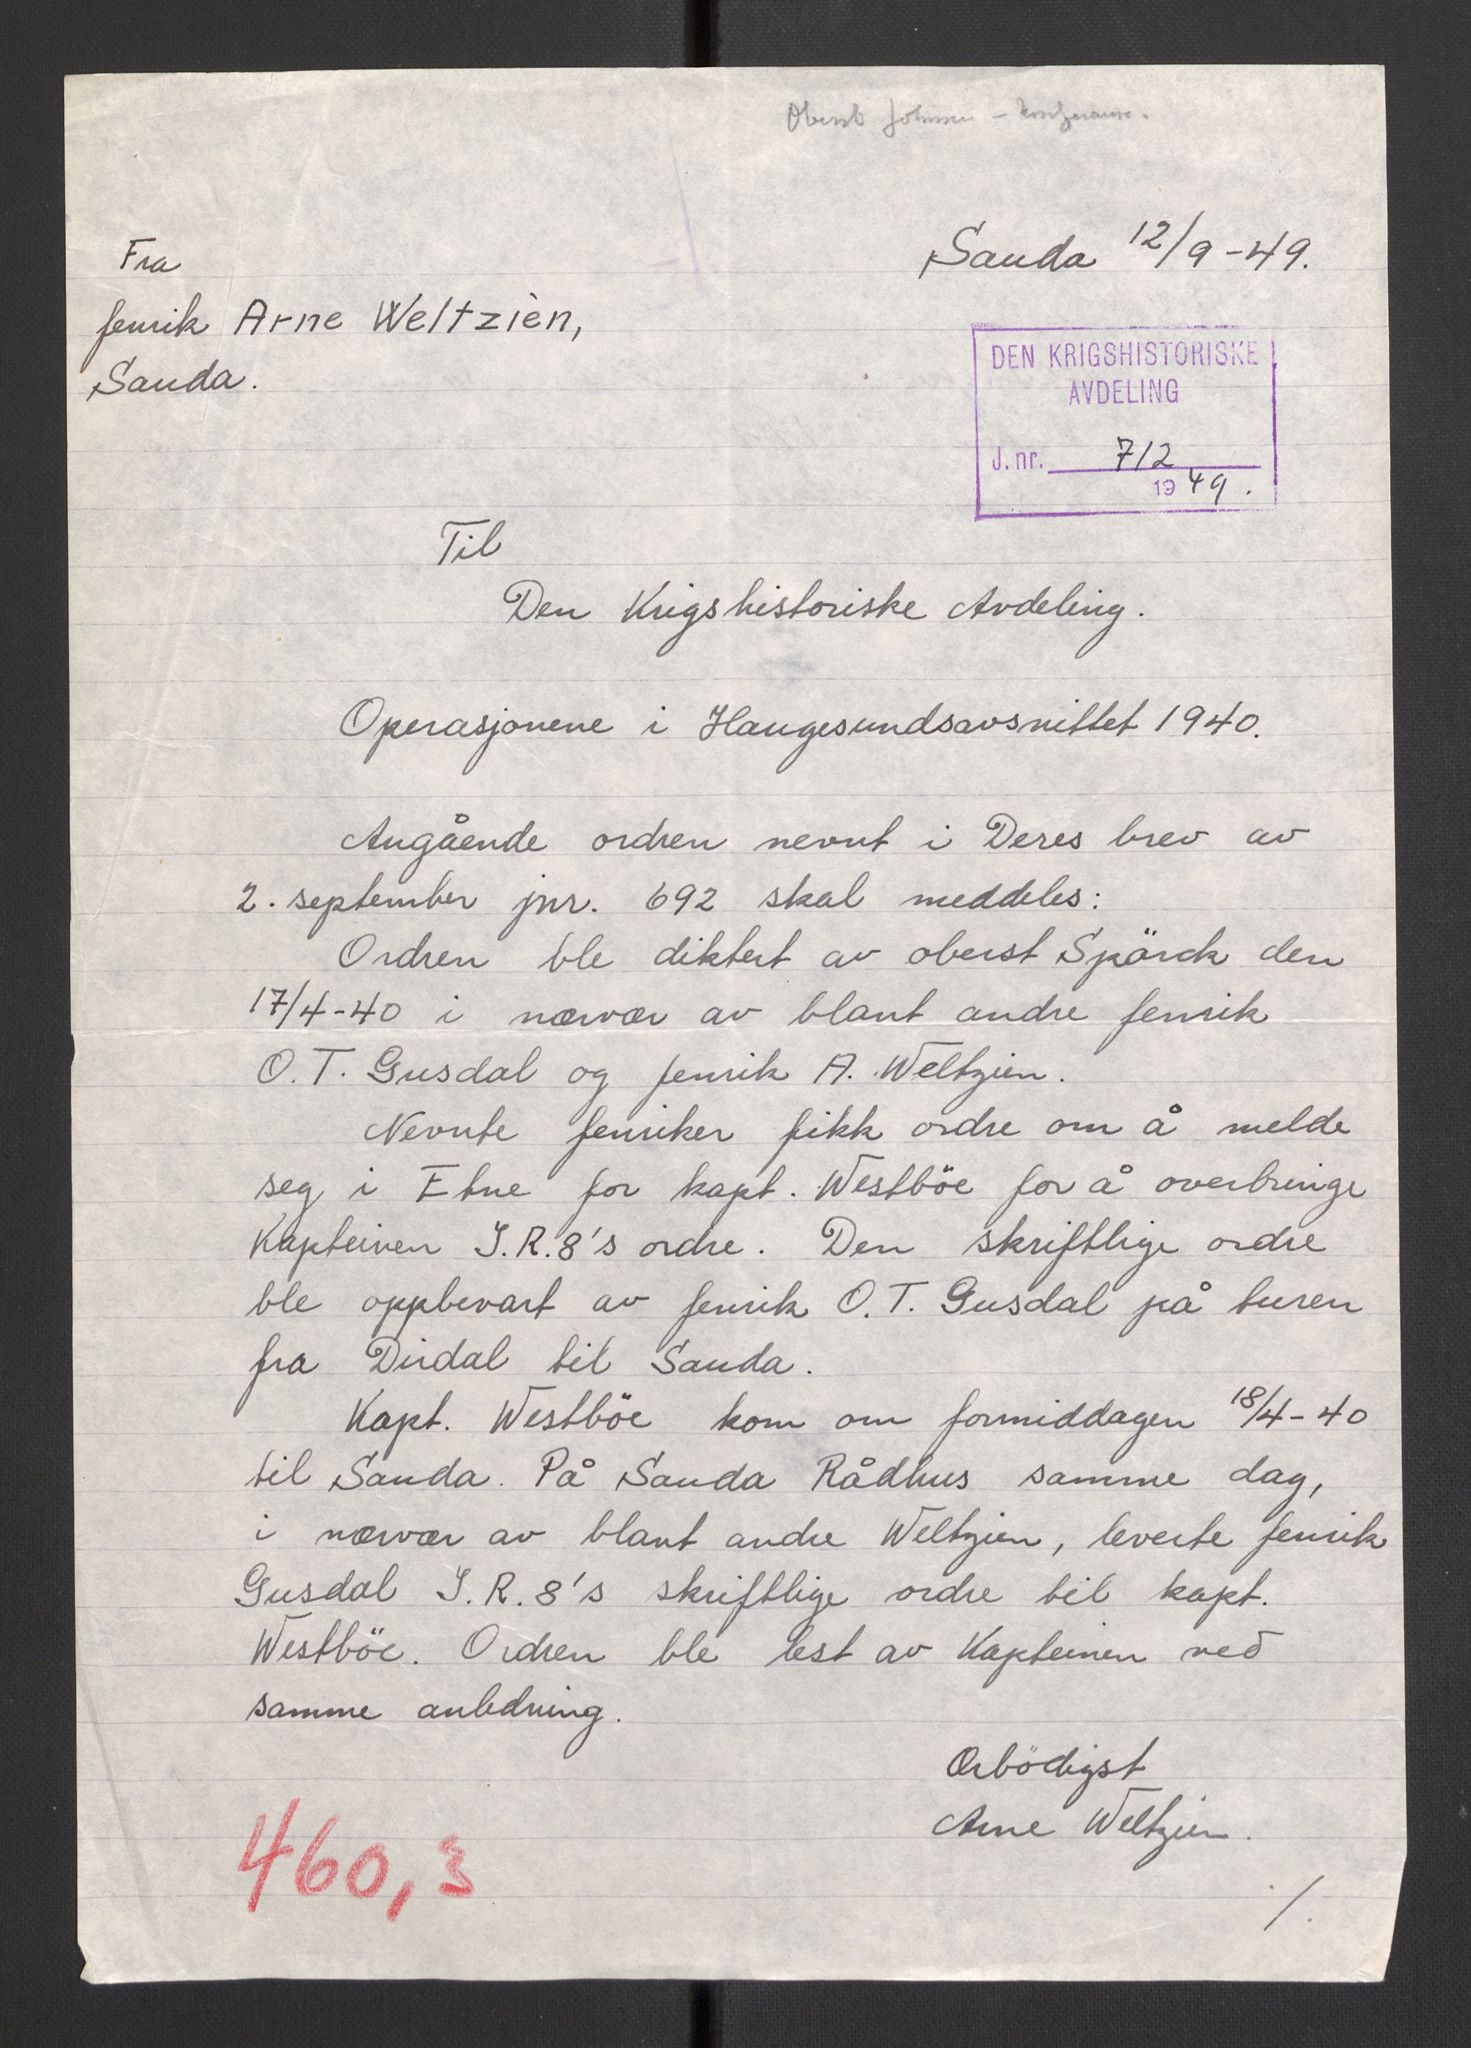 Oberst Johnsen –
Sauda 12/9-49.
Fra
fenrik Arne Weltzièn,
Sauda.
DEN KRIGSHISTORISKE
AVDELING
J. nr. 712
1949.
Til
Den Krigshistoriske Avdeling.
Operasjonene i Haugesundsavsnittet 1940.
Angående ordren nevnt i Deres brev av
2. september jnr. 692 skal meddeles:
Ordren ble diktert av oberst Spörck den
17/4-40 i nærvær av blant andre fenrik
O. T. Gusdal og fenrik A. Weltzien.
Nevnte fenriker fikk ordre om å melde
seg i Etne for kapt. Westböe for å overbringe
Kapteinen I.R.8's ordre. Den skriftlige ordre
ble oppbevart av fenrik O. T. Gusdal på turen
fra Dirdal til Sauda.
Kapt. Westböe kom om formiddagen 18/4-40
til Sauda. På Sauda Rådhus samme dag,
i nærvær av blant andre Weltzien, leverte fenrik
Gusdal I.R.8's skriftlige ordre til kapt.
Westböe. Ordren ble lest av Kapteinen ved
samme anledning.
Ærbödigst
Arne Weltzien.
460,3
./.